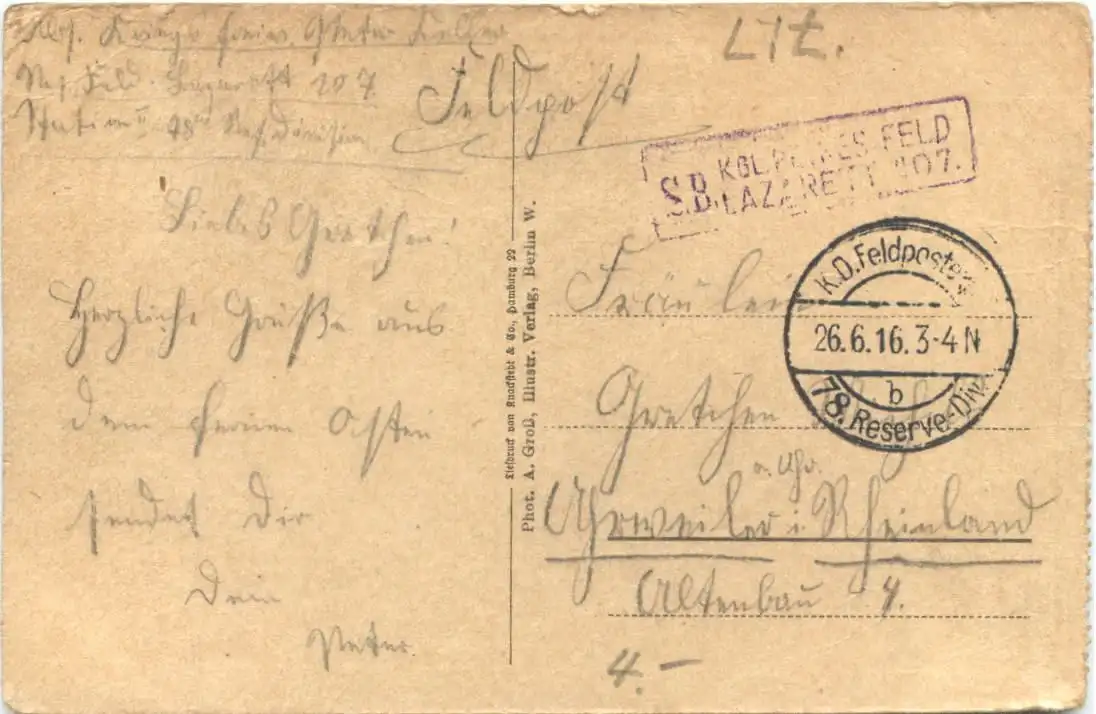 Abs. Kriegsfreiw. Peter Keller
Res. Feld-Lazarett 107
Station II 78te Res. Division
Feldpost
Lit.
S.B. KGL. PR. RES. FELD
LAZARETT 107.
K.D. Feldpostexp.
26.6.16. 3-4 N
b
78. Reserve-Div.
Liebes Gretchen!
Herzliche Grüße aus
dem fernen Osten
sendet Dir
Dein
Peter.
Tiefdruck von Knackstedt & Co., Hamburg 22
Phot. A. Groß, Illustr. Verlag, Berlin W.
Fräulein
Gretchen
Ahrweiler i. Rheinland
Altenbau 4.
4.—